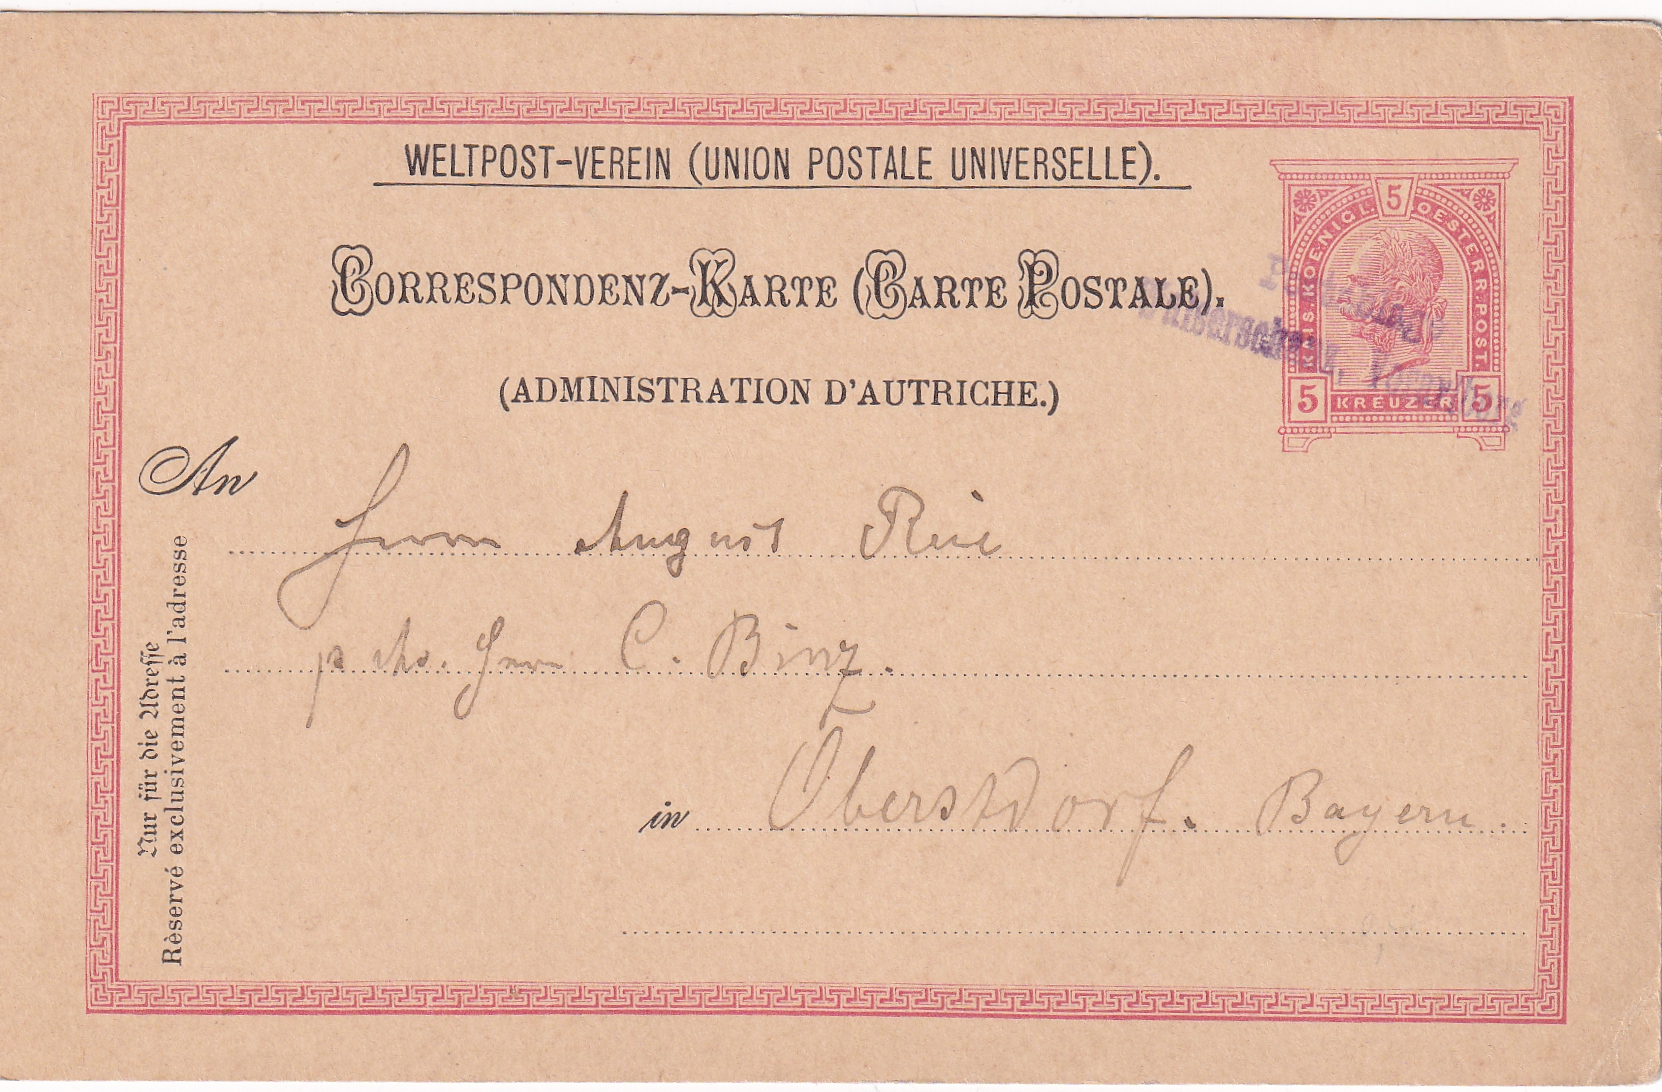 WELTPOST-VEREIN (UNION POSTALE UNIVERSELLE).
CORRESPONDENZ-KARTE (CARTE POSTALE).
(ADMINISTRATION D'AUTRICHE.)
5
KAIS. KOENIGL. OESTERR. POST.
5 KREUZER 5
An
Herrn August
Herrn C. Binz.
in Oberstdorf. Bayern.
Nur für die Adresse
Rèservé exclusivement à l'adresse